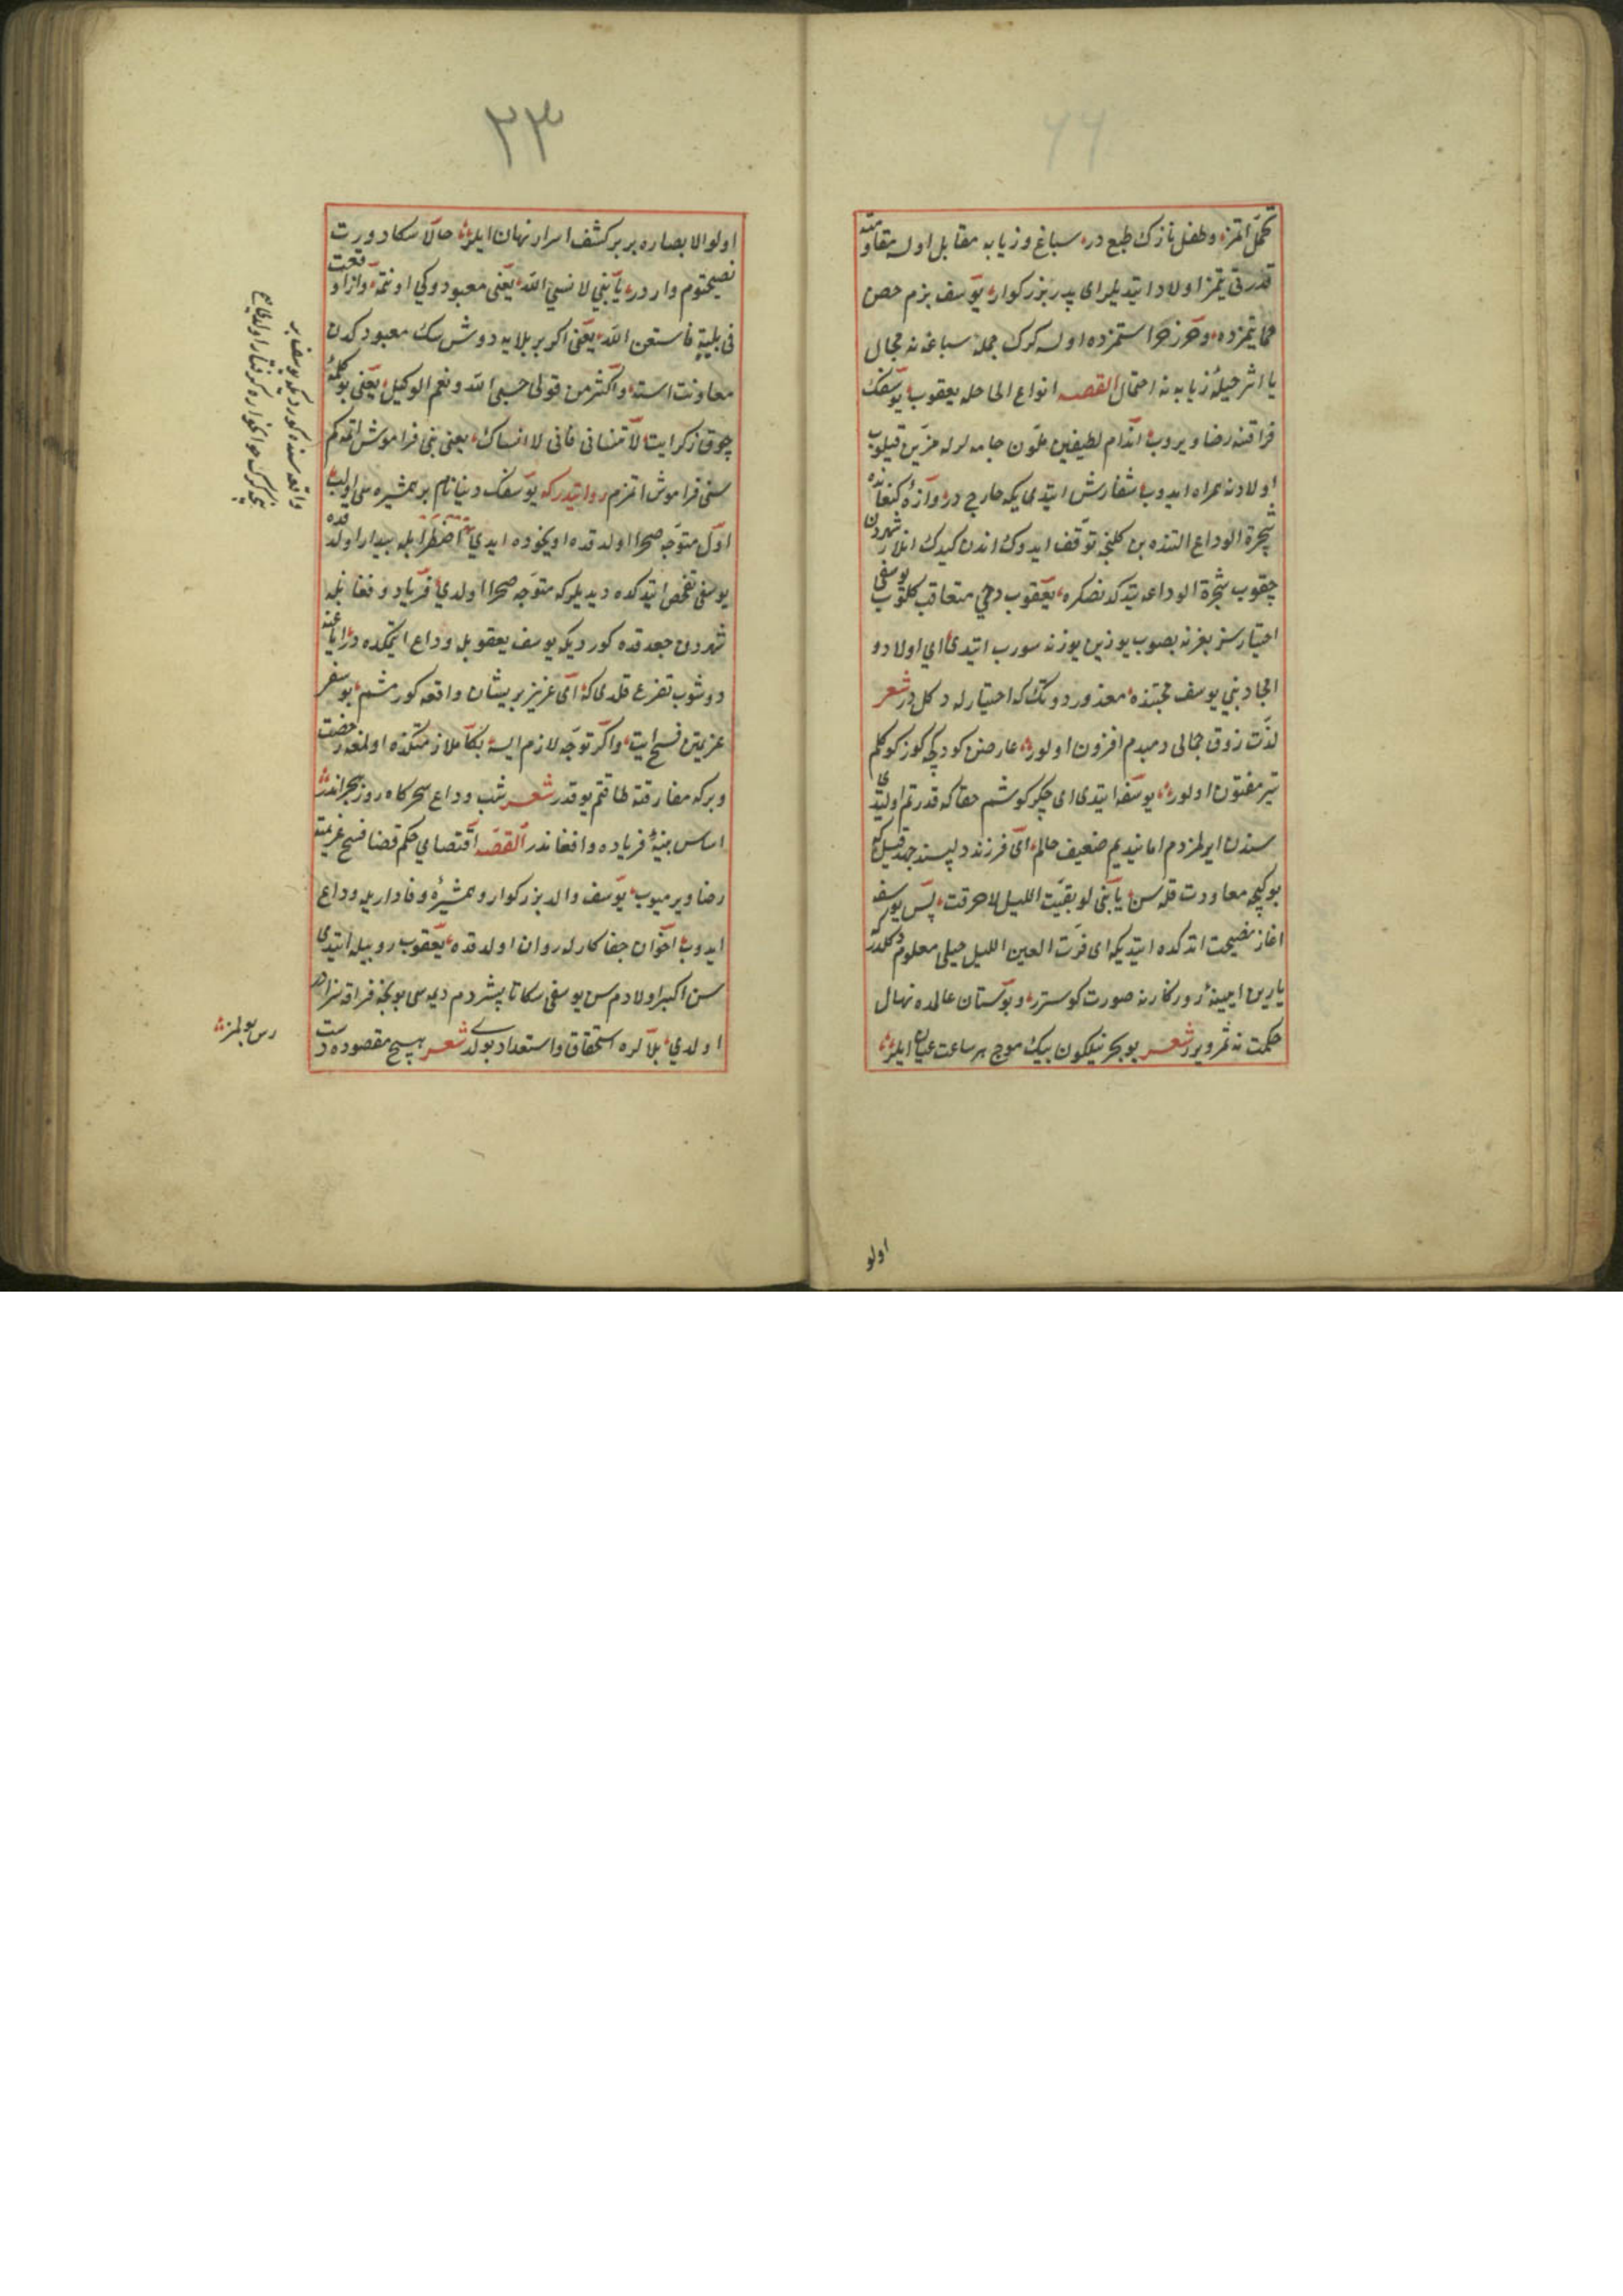 ٢٢
تحمل اتمز وطفل نازك طبع در سباغ وزيابه مقابل اولسه مقاومته
قدرتى يتمز اولاد ايتديلر اى پدر بزركوار يوسف بزم حصن
حمايتمزده وحرز حراستمزده اولسه كرك جمله سباعه نه مجال
يا اثر حيلهٔ زيابه نه احتمال القصه انواع الحاحله يعقوب يوسفك
فراقنه رضا ويروب اندام لطيفين ملون جامه لرله مزين قيلوب
اولادنه همراه ايدوب سفارش ايتدى يكه خارج دروازهٔ كنعانده
شجرة الوداع التنده بن كلنجه توقف ايدوك اندن كيدك انلار شهردن
چقوب شجرة الوداعه يتدكدنصكره يعقوب دخى متعاقب كلوب يوسفى
اختيارسز بغرنه بصوب يوزين يوزنه سورب ايتدى اى اولاد و
امجاد بنى يوسف محبتنده معذور دوتك كه اختيارله دكل در شعر
لذت ذوق جمالى دمبدم افزون اولور عارضن كوردكچه كوز كوكلم
بتر مفتون اولور يوسفه ايتدى اى جكر كوشم حقا كه قدرتم اوليدى
سندن ايرلمزدم اما نيديم ضعيف حالم اى فرزند دلپسند جهد قيل كه
بو كيجه معاودت قله سن يا بنى لو بقيت الليل لاحرقت پس يوسفه
اغاز نصيحت اتدكده ايتديكه اى قرت العين الليل حبلى معلوم دكلدر
يارين ايينهٔ روزكار نه صورت كوسترر وبوستان عالمده نهال
حكمت نه ثمر ويرر شعر بو بحر نيلكون بيك موج هر ساعت عيان ايلر
اولو
٢٣
اولو الابصاره بر بر كشف اسرار نهان ايلر حالا سكا دورت
نصيحتوم واردر يا بنى لا تنسى الله يعنى معبودوكى اونتمه واذا وقعت
فى بلية فاستعن الله يعنى اكر بر بلايه دوشسك معبودكدن
معاونت استه واكثر من قولى حسبى الله ونعم الوكيل يعنى بو كلمهٔ
چوق ذكر ايت لا تنسانى فانى لا انساك يعنى بنى فراموش اتمه كم
سنى فراموش اتمزم روايتدر كه يوسفك دينا نام بر همشيره سى اولب
اول متوجه صحرا اولدقده اويخوده ايدى اضطرابله بيدار اولدقده
يوسفى تفحص ايتدكده ديديلر كه متوجه صحرا اولدى فرياد و فغانله
شهردن چقدقده كورديكه يوسف يعقوبله وداع ايتمكده در اياغنه
دوشوب تضرع قلدى كه اى عزيز بر پيشان واقعه كورمشم بو سفر
عزيمتن فسخ ايت واكر توجه لازم ايسه بنكا ملازمتكده اولمغه رخصت
وير كه مفارقته طاقتم يوقدر شعر شب وداع سحركاه روز هجراندر
اساس بنيهٔ فرياده و افغاندر القصه اقتضاى حكم قضا فسخ عزيمته
رضا ويرميوب يوسف والد بزركوار و همشيرهٔ وفاداريله وداع
ايدوب اخوان جفاكارله روان اولدقده يعقوب روبيله ايتدى
سن اكبر اولادم سن يوسفى سكا تاپشردم ديمسى بو بكه فراقه سزاوار
اولدى بلالره استحقاق و استعداد بولدى شعر هيچ مقصوده دست
رس بولمز
واقعه سنده كورديكه يوسف بر
نيجه كرك خونخواره كرفتار اولمش